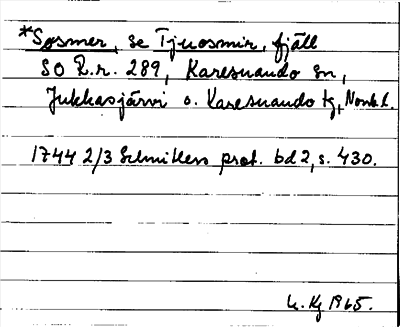 *Sosmer, se Tjuosmir, fjäll
SO R.r. 289, Karesuando sn,
Jukkasjärvi o. Karesuando tg, Norrb.l.
1744 2/3 Schnitlers prot. bd 2, s. 430.
1965.